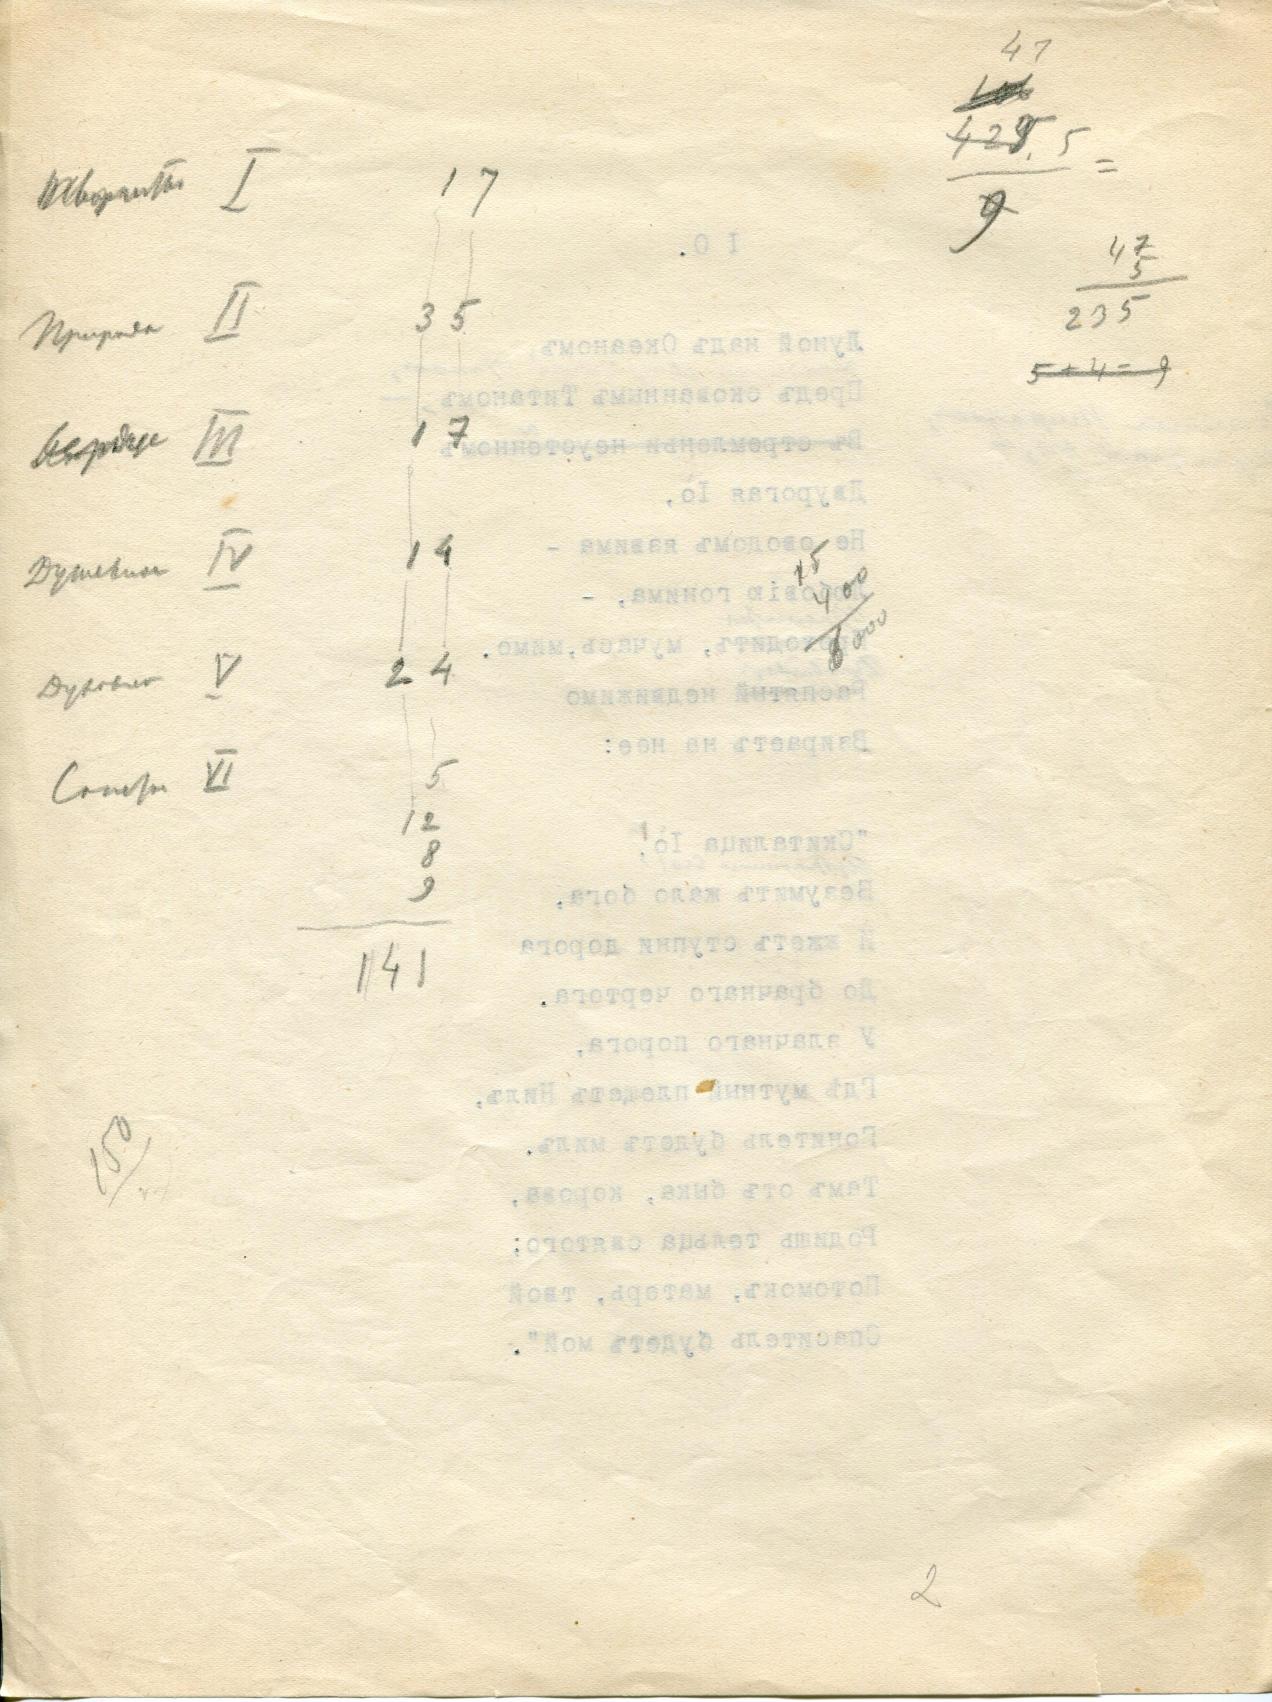 47
425.5 =
9
Творчество I 17
47
5
235
I O.
Природа II 35
5 + 4 = 9
Луной надъ Океаномъ,
Предъ скованнымъ Титаномъ, —
Сердце III 17
Въ стремленьи неустанномъ
Двурогая Іо,
Не оводомъ язвима -
Душевное IV 14
15
400
6000
Любовію гонима, -
Проходитъ, мучась, мимо.
Духовное V 24
Распятый недвижимо
Взираетъ на нее:
Сонеты VI 5
12
8
9
141
"Скиталица Іо!
Безумитъ жало бога,
И жжетъ ступни дорога
До брачнаго чертога.
У злачнаго порога,
Гдѣ мутный плещетъ Нилъ,
Гонитель будетъ милъ.
150
Тамъ отъ быка, корова,
Родишь тельца святого;
Потомокъ, матерь, твой
Спаситель будетъ мой".
2